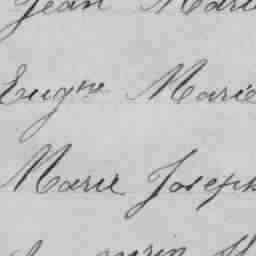 Jean Marie
Eugne Marie
Marie Joseph